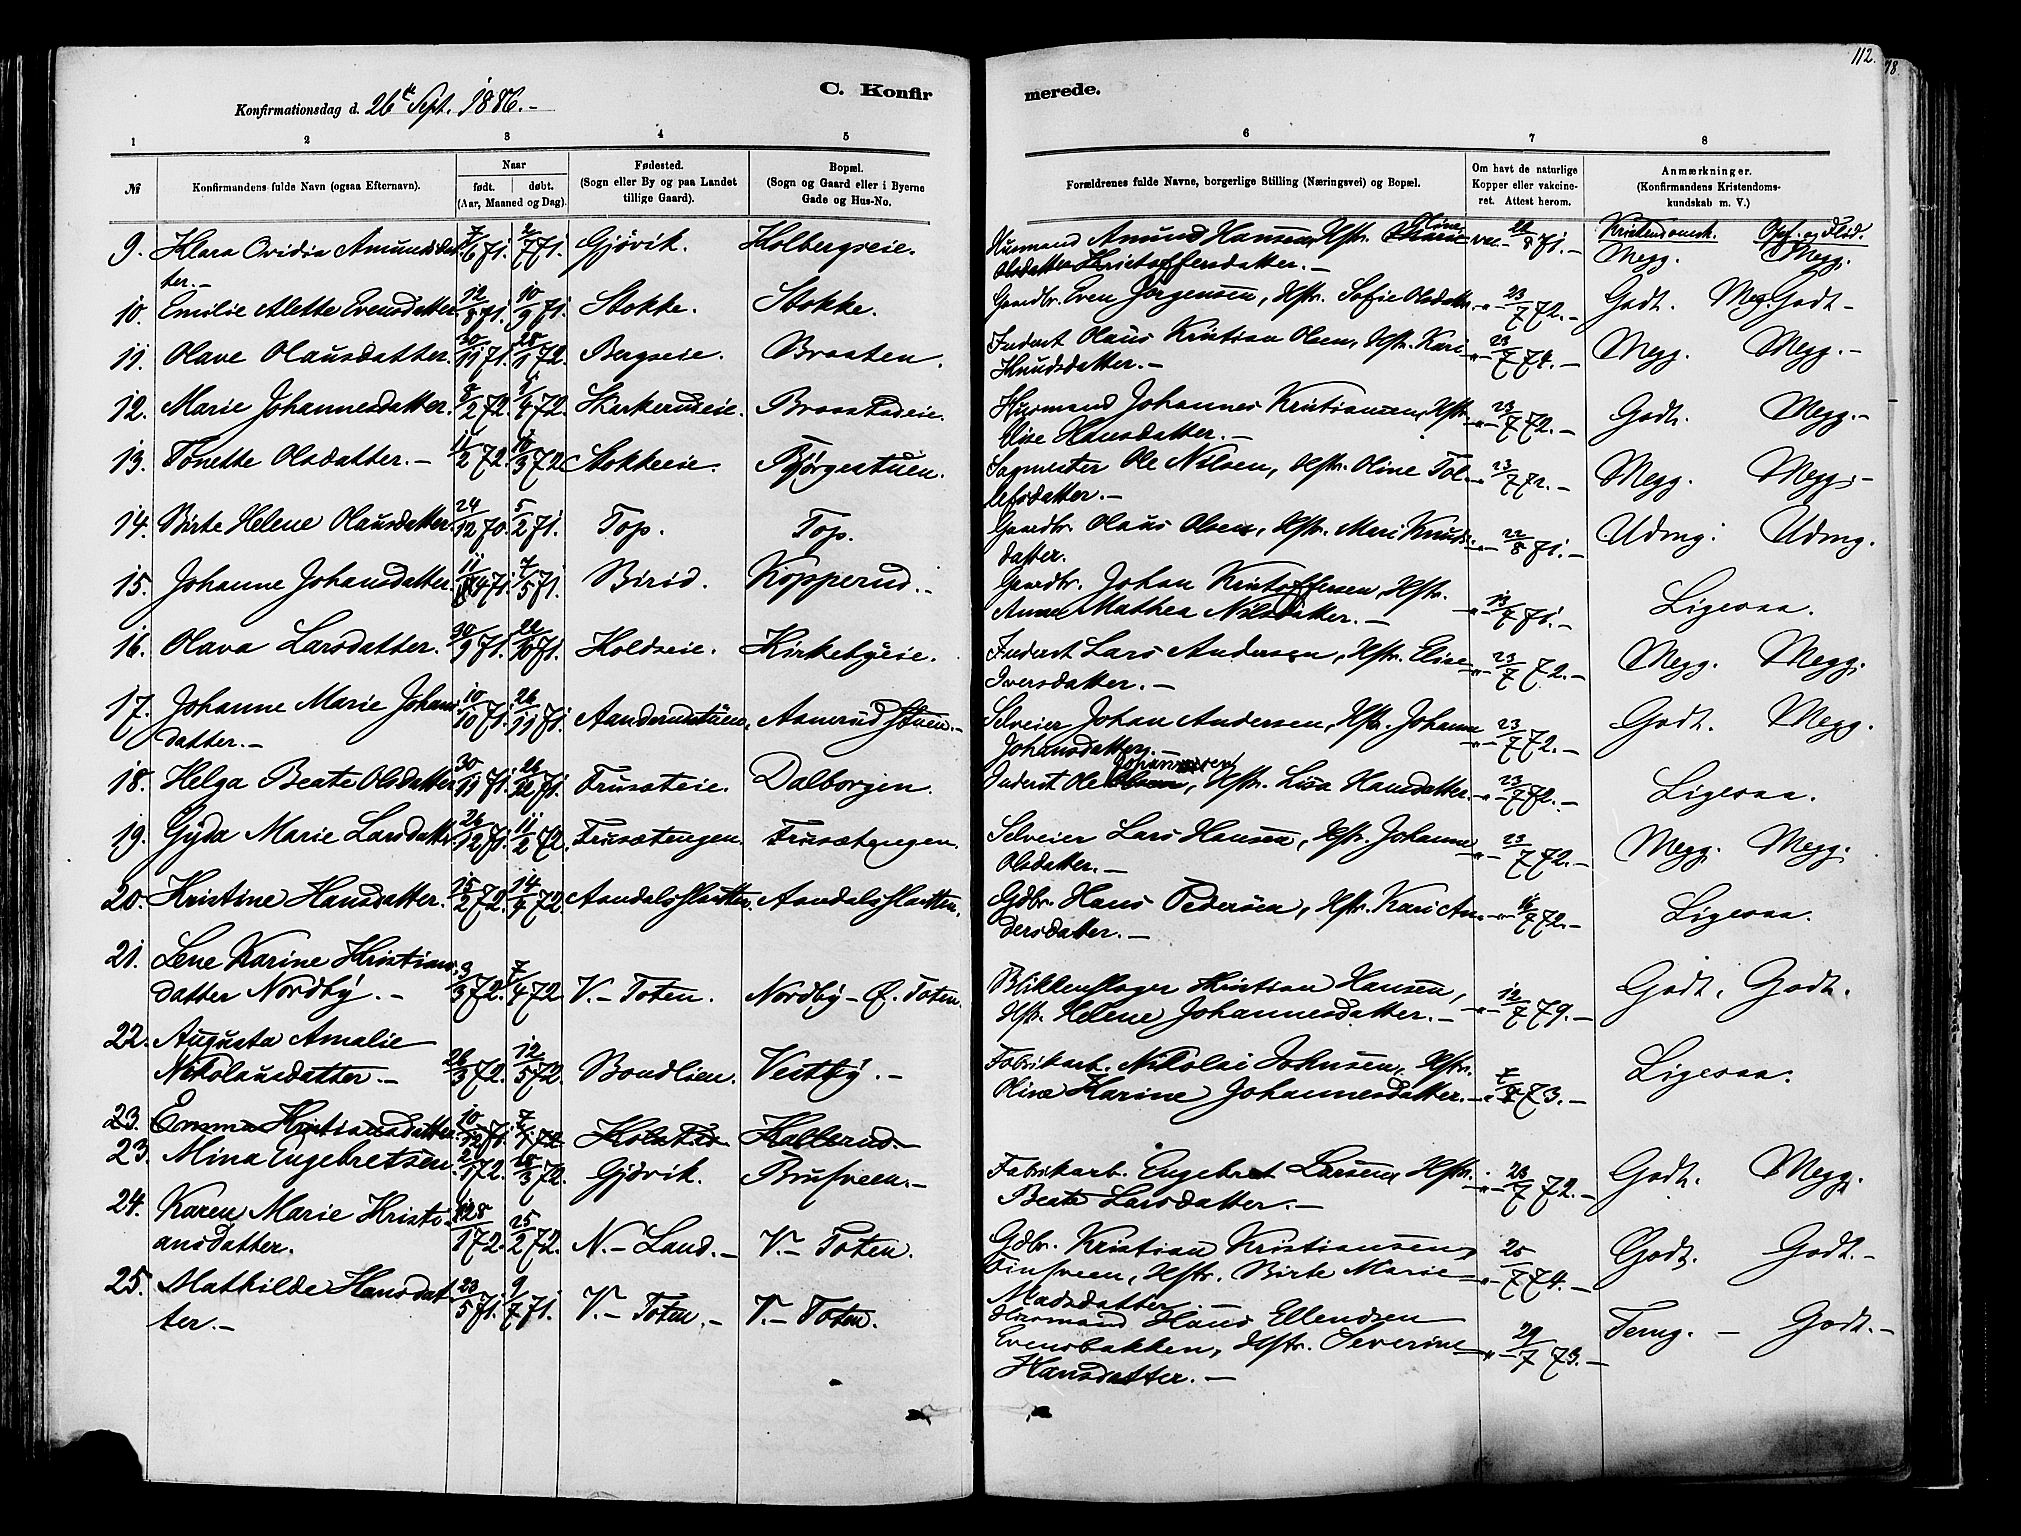 112.
78.
C. Konfir
merede.
Konfirmationsdag d. 26de Sept. 1886.-
1 2 3 4 5 6 7 8
№
Konfirmandens fulde Navn (ogsaa Efternavn).
Naar
født. døbt.
(Aar, Maaned og Dag).
Fødested.
(Sogn eller By og paa Landet
tillige Gaard).
Bopæl.
(Sogn og Gaard eller i Byerne
Gade og Hus-No.
Forældrenes fulde Navne, borgerlige Stilling (Næringsvei) og Bopæl.
Om havt de naturlige
Kopper eller vakcine-
ret. Attest herom.
Anmærkninger.
(Konfirmandens Kristendoms-
kundskab m. V.)
Kristendomsk. Opf. og Flid.
9. Klara Ovidia Amundsdat- 7/6 71. 2/7 71. Gjøvik. Kolbergseie. Husmand Amund Hansen, Hstr. Oline vac. 22/8 71.- Megg. Megg.
ter.- Olsdatter Kristoffersdatter.-
10. Emilie Alette Evensdatter 12/8 71. 10/9 71. Stokke. Stokke. Gaardbr. Even Jørgensen, Hstr. Sofie Olsdatter -"- 23/7 72.- Godt. Meg. Godt-
11. Olave Olausdatter. 20/11 71. 28/1 72. Bergseie. Braaten. Inderst Olaus Kristian Olsen, Hstr. Kari -"- 23/7 74.- Megg. Megg.-
Knudsdatter.-
12. Marie Johannesdatter. 8/2 72. 1/4 72. Skjerkerudeie. Braastadeie. Husmand Johannes Kristiansen, Hstr. -"- 23/7 72.- Godt. Megg.-
Elise Hansdatter.-
13. Tonette Olsdatter.- 11/2 72. 10/3 72 Stokkeeie. Bjørgestuen. Sagmester Ole Nilsen, Hstr. Oline Tol- -"- 23/7 72.- Megg. Megg.-
lefsdatter.-
14. Birte Helene Olausdatter. 24/12 70. 5/2 71. Top. Top. Gaardbr. Olaus Olsen, Hstr. Mari Knuds- -"- 22/8 71.- Udmg. Udmg.
datter.
15. Johanne Johansdatter. 11/4 71. 7/5 71. Birid. Kopperud.- Gaardbr. Johan Kristoffersen, Hstr. -"- 13/7 71.- Ligesaa.
Anne Mathea Nilsdatter.-
16. Olava Larsdatter. 30/9 71. 22/10 71. Holdseie. Kirkebyeie. Inderst Lars Andersen, Hstr. Elise -"- 23/7 72.- Megg. Megg.
Iversdatter.-
17. Johanne Marie Johans- 10/10 71. 26/11 71. Aanderudstuen. Aanerudstuen.- Selveier Johan Andersen, Hstr. Johanne -"- 23/7 72.- Godt. Megg.
datter.- Johansdatter.-
18. Helga Beate Olsdatter 30/11 71. 26/12 71. Frusæteie. Dalborgen. Inderst Ole Johannesen, Hstr. Lisa Hansdatter. -"- 23/7 72.- Ligesaa.
19. Gyda Marie Larsdatter 26/12 71. 11/2 72. Frusætengen. Frusætengen. Selveier Lars Hansen, Hstr. Johanne -"- 23/7 72.- Megg. Megg.
Olsdatter.-
20. Kristine Hansdatter. 15/2 72. 14/4 72. Aandalsslætten. Aandalsslætten. Gdbr. Hans Pedersen, Hstr. Kari An- -"- 16/7 72.- Ligesaa.
dersdatter.-
21. Lene Karine Kristians-
datter Nordby.- 3/3 72. 7/4 72. V.- Toten. Nordby- Ø. Toten. Blikkenslager Kristian Hansen, -"- 12/7 79.- Godt. Godt.
Hstr. Helene Johannesdatter.-
22. Augusta Amalie
Nikolausdatter.- 26/3 72. 12/5 72. Bondlien. Vestby.- Fabrikarb. Nikolai Johnsen, Hstr. Ligesaa.
Oline Karine Johannesdatter.- 73.-
23. Emma Kristiansdatter. 10/12 71. 7/1 72. Kolstad Kallerud.-
23. Mina Engebretsen. 72. 3 72. Gjøvik. Brusveen.- Fabrikarb. Engebret Larsen, Hstr. -"- 23/7 72.- Godt. Megg.
Beate Larsdatter.-
24. Karen Marie Kristi-
ansdatter. 28/1 72. 25/2 72. N.- Land.- V.- Toten. Gdbr. Kristian Kristiansen -"- 25/7 74.- Godt. Godt.-
Finsveen, Hstr. Birte Marie
Madsdatter
25. Mathilde Hansdat- 23/5 71. 9/7 71. V.- Toten.- V.- Toten. Husmand Hans Ellendsen
ter.- Evensbakken, Hstr. Severine -"- 29/7 73.- Temg. - Godt.-
Hansdatter.-